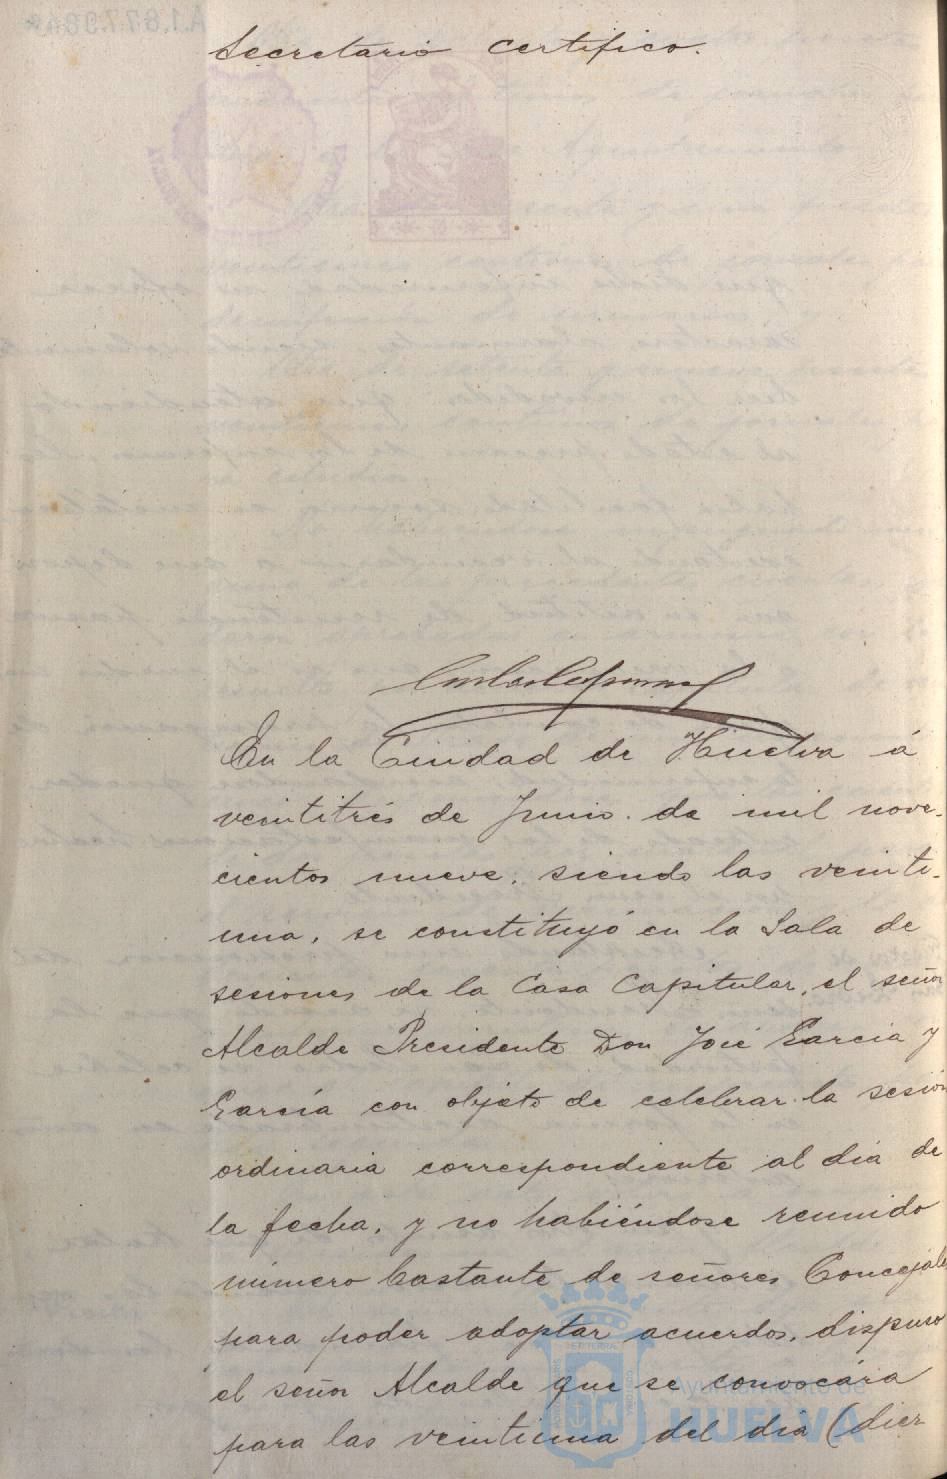 Secretario certifico.
En la Ciudad de Huelva á
veintitrés de Junio de mil nove-
cientos nueve, siendo las veinti-
una, se constituyó en la Sala de
sesiones de la Casa Capitular, el señor
Alcalde Presidente Don José Garcia y
García con objeto de celebrar la sesión
ordinaria correspondiente al dia de
la fecha, y no habiéndose reunido
número bastante de señores Concejales
para poder adoptar acuerdos, dispuso
el señor Alcalde que se convocára
para las veintiuna del dia (diez
Ayuntamiento de
HUELVA